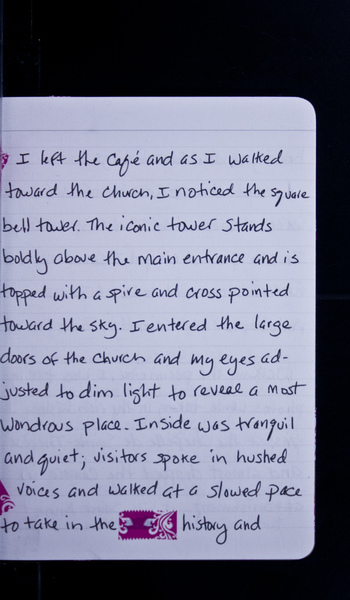 I left the Café and as I walked
toward the church, I noticed the square
bell tower. The iconic tower stands
boldly above the main entrance and is
topped with a spire and cross pointed
toward the sky. I entered the large
doors of the church and my eyes ad-
justed to dim light to reveal a most
wondrous place. Inside was tranquil
and quiet; visitors spoke in hushed
voices and walked at a slowed pace
to take in the history and